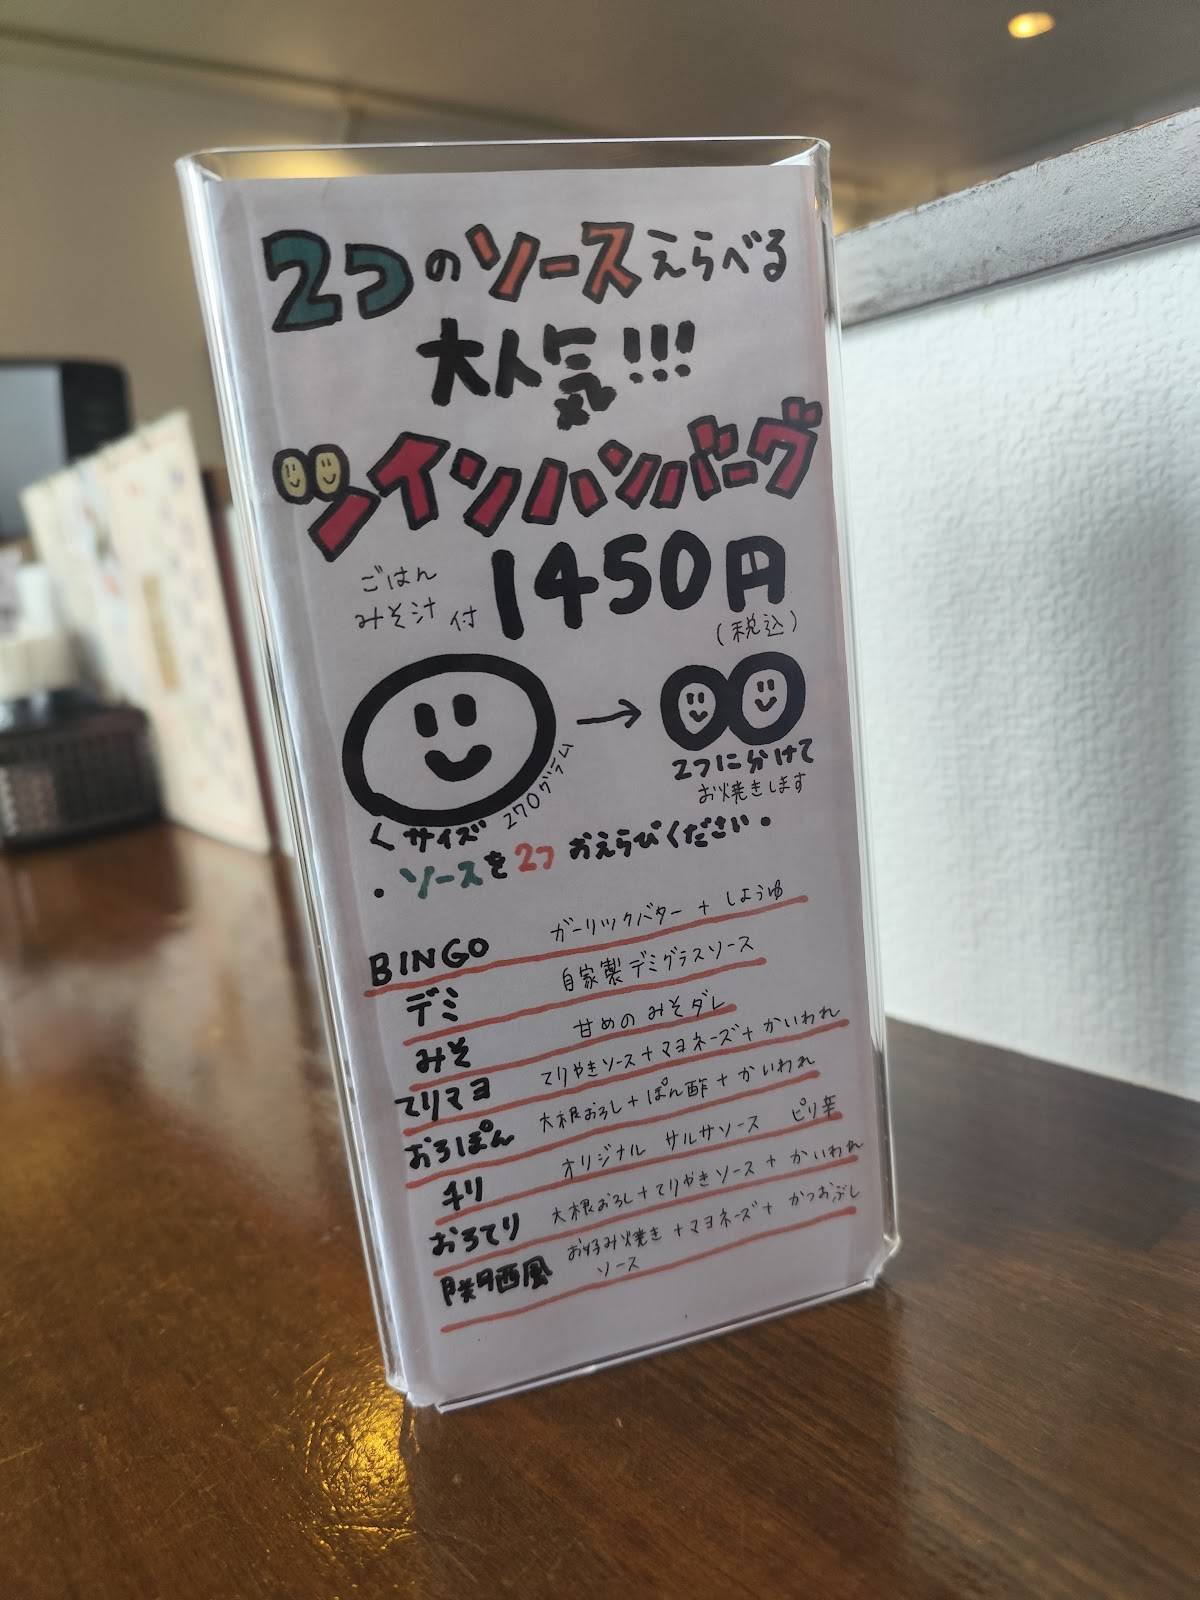 2つのソースえらべる
大人気!!!
ツインハンバーグ
ごはん
みそ汁 付 1450円
(税込)
→
2つに分けて
お焼きします
くサイズ 270グラム
・ソースを2つ おえらびください・
BINGO ガーリックバター + しょうゆ
デミ 自家製デミグラスソース
みそ 甘めのみそダレ
てりマヨ てりやきソース+マヨネーズ+かいわれ
おろぽん 大根おろし+ぽん酢+かいわれ
チリ オリジナル サルサソース ピリ辛
おろてり 大根おろし+てりやきソース+かいわれ
関西風 お好み焼き+マヨネーズ+かつおぶし
ソース